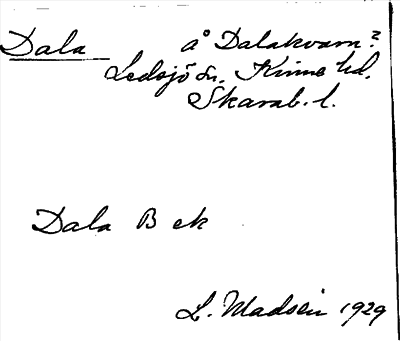 Dala å Dalakvarn?
Ledsjö sn. Kinne hd.
Skarab. l.
Dala B ek
L. Madsén 1929